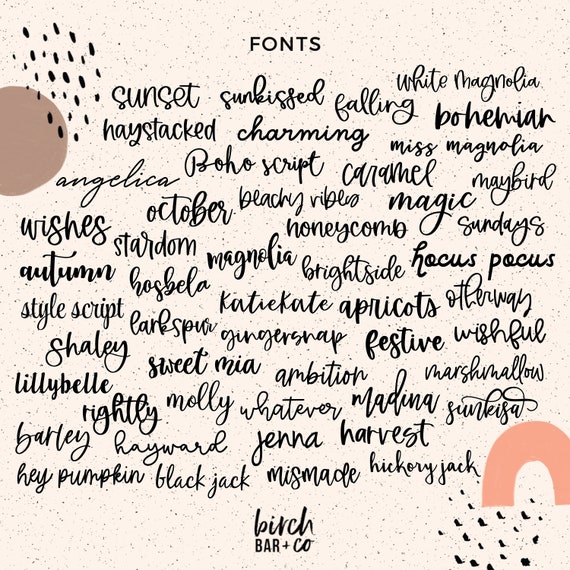 FONTS
sunset sunkissed falling white magnolia
haystacked charming bohemian
miss magnolia
angelica Boho script caramel maybird
wishes october beachy vibes magic
stardom honeycomb sundays
autumn hosbela magnolia brightside hocus pocus
style script KatieKate apricots otherway
larkspur gingersnap festive wishful
Shaley sweet mia ambition marshmallow
lillybelle
rightly molly whatever madina sunkisa
barley hayward jenna harvest
hey pumpkin black jack mismade hickory jack
birch
BAR + CO